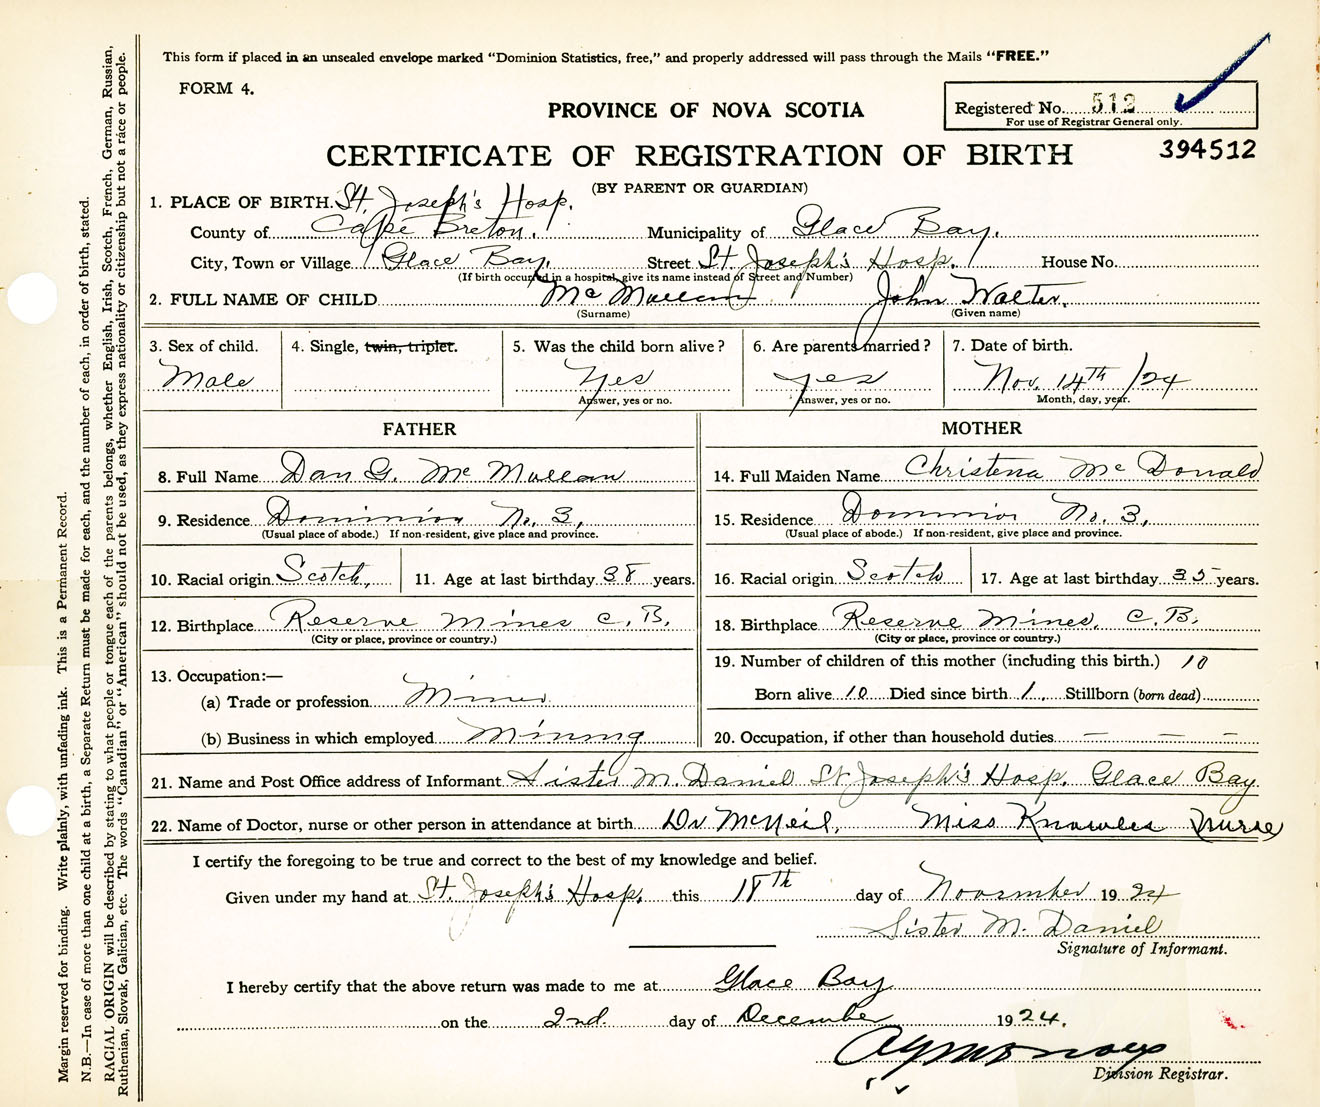 This form if placed in an unsealed envelope marked "Dominion Statistics, free," and properly addressed will pass through the Mails "FREE."
FORM 4.
PROVINCE OF NOVA SCOTIA
Registered No. 512
For use of Registrar General only.
394512
CERTIFICATE OF REGISTRATION OF BIRTH
(BY PARENT OR GUARDIAN)
1. PLACE OF BIRTH. St. Joseph's Hosp.
County of Cape Breton. Municipality of Glace Bay.
City, Town or Village Glace Bay. Street St. Joseph's Hosp. House No.
(If birth occurred in a hospital, give its name instead of Street and Number)
2. FULL NAME OF CHILD Mc Mullan John Walter.
(Surname) (Given name)
3. Sex of child. 4. Single, twin, triplet. 5. Was the child born alive? 6. Are parents married? 7. Date of birth.
Male Yes yes Nov. 14th /24
Answer, yes or no. Answer, yes or no. Month, day, year.
FATHER MOTHER
8. Full Name Dan G. Mc Mullan 14. Full Maiden Name Christena Mc Donald
9. Residence Dominion No. 3, 15. Residence Dominion No. 3,
(Usual place of abode.) If non-resident, give place and province. (Usual place of abode.) If non-resident, give place and province.
10. Racial origin Scotch, 11. Age at last birthday 38 years. 16. Racial origin Scotch 17. Age at last birthday 35 years.
12. Birthplace Reserve Mines C. B. 18. Birthplace Reserve Mines. C. B.
(City or place, province or country.) (City or place, province or country.)
13. Occupation:— 19. Number of children of this mother (including this birth.) 10
(a) Trade or profession Miner Born alive 10 Died since birth 1. Stillborn (born dead)
(b) Business in which employed Mining 20. Occupation, if other than household duties — — —
21. Name and Post Office address of Informant Sister M. Daniel St Joseph's Hosp. Glace Bay
22. Name of Doctor, nurse or other person in attendance at birth Dr McNeil, Miss Knowles Nurse
I certify the foregoing to be true and correct to the best of my knowledge and belief.
Given under my hand at St. Joseph's Hosp. this 18th day of November 1924
Sister M. Daniel
Signature of Informant.
I hereby certify that the above return was made to me at Glace Bay
on the 2nd. day of December 1924.
Division Registrar.
Margin reserved for binding. Write plainly, with unfading ink. This is a Permanent Record.
N.B.—In case of more than one child at a birth, a Separate Return must be made for each, and the number of each, in order of birth, stated.
RACIAL ORIGIN will be described by stating to what people or tongue each of the parents belongs, whether English, Irish, Scotch, French, German, Russian,
Ruthenian, Slovak, Galician, etc. The words "Canadian" or "American" should not be used, as they express nationality or citizenship but not a race or people.